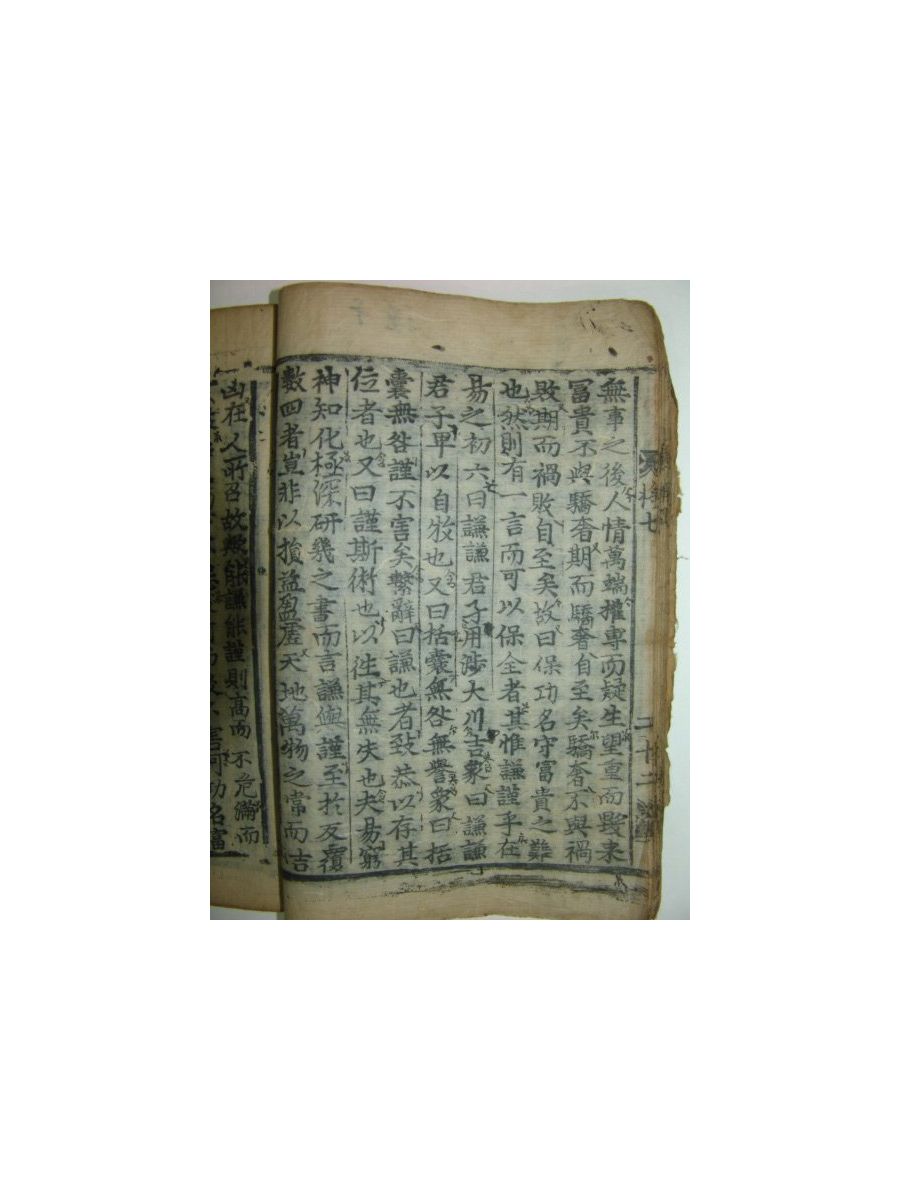 無事之後人情萬端權専而疑生望重而毀来
冨貴不與驕奢期而驕奢自至矣驕奢不與禍
敗期而禍敗自至矣故曰保功名守富貴之難
也然則有一言而可以保全者其惟謙謹乎在
易之初六曰謙謙君子用涉大川吉象曰謙謙
君子卑以自牧也又曰括囊無咎無譽象曰括
囊無咎謹不害矣繫辭曰謙也者致恭以存其
位者也又曰謹斯術也以徃其無失也夫易窮
神知化極深研幾之書而言謙與謹至於反覆
數四者豈非以損益盈虛天地萬物之常而吉
凶在人所召故歟能謙能謹則高而不危滿而
功名富